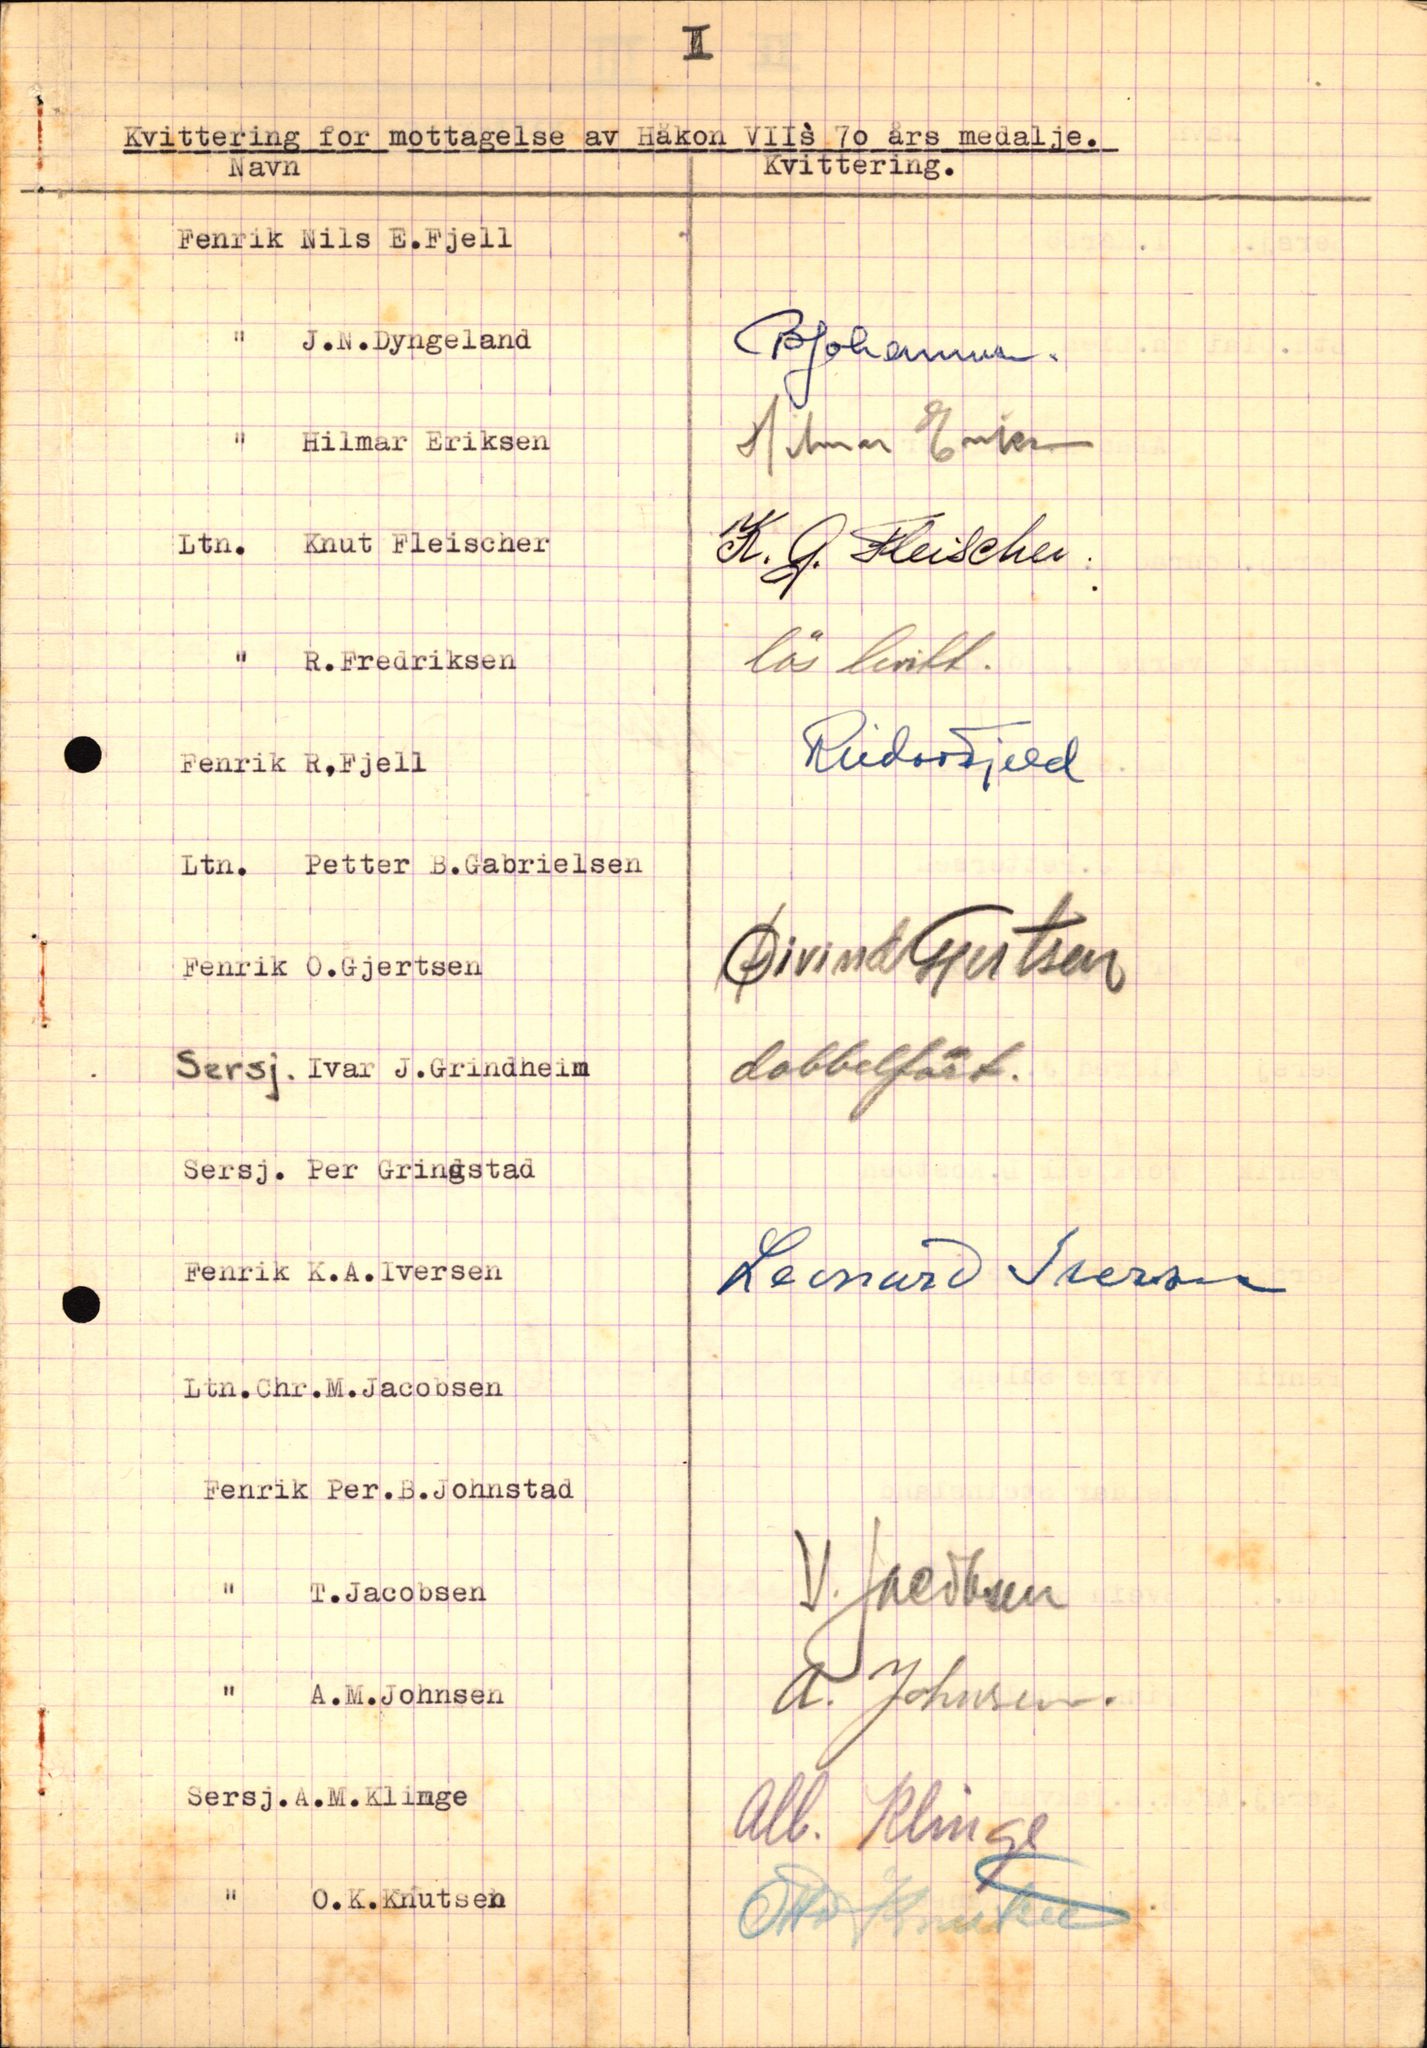 II
Kvittering for mottagelse av Håkon VIIs̀ 7o års medalje.
Navn Kvittering.
Fenrik Nils E.Fjell
" J.N.Dyngeland BJohannesen.
" Hilmar Eriksen Hilmar Eriksen
Ltn. Knut Fleischer K. G. Fleischer.
" R.Fredriksen løs kvitt.
Fenrik R,Fjell Reidar Fjeld
Ltn. Petter B.Gabrielsen
Fenrik O.Gjertsen Øivind Gjertsen
Sersj. Ivar J.Grindheim dobbelført.
Sersj. Per Gringstad
Fenrik K.A.Iversen Leonard Iversen
Ltn.Chr.M.Jacobsen
Fenrik Per.B.Johnstad
" T.Jacobsen V. Jacobsen
" A.M.Johnsen A. Johnsen.
Sersj.A.M.Klinge Alb. Klinge
" O.K.Knutsen Otto Knutsen